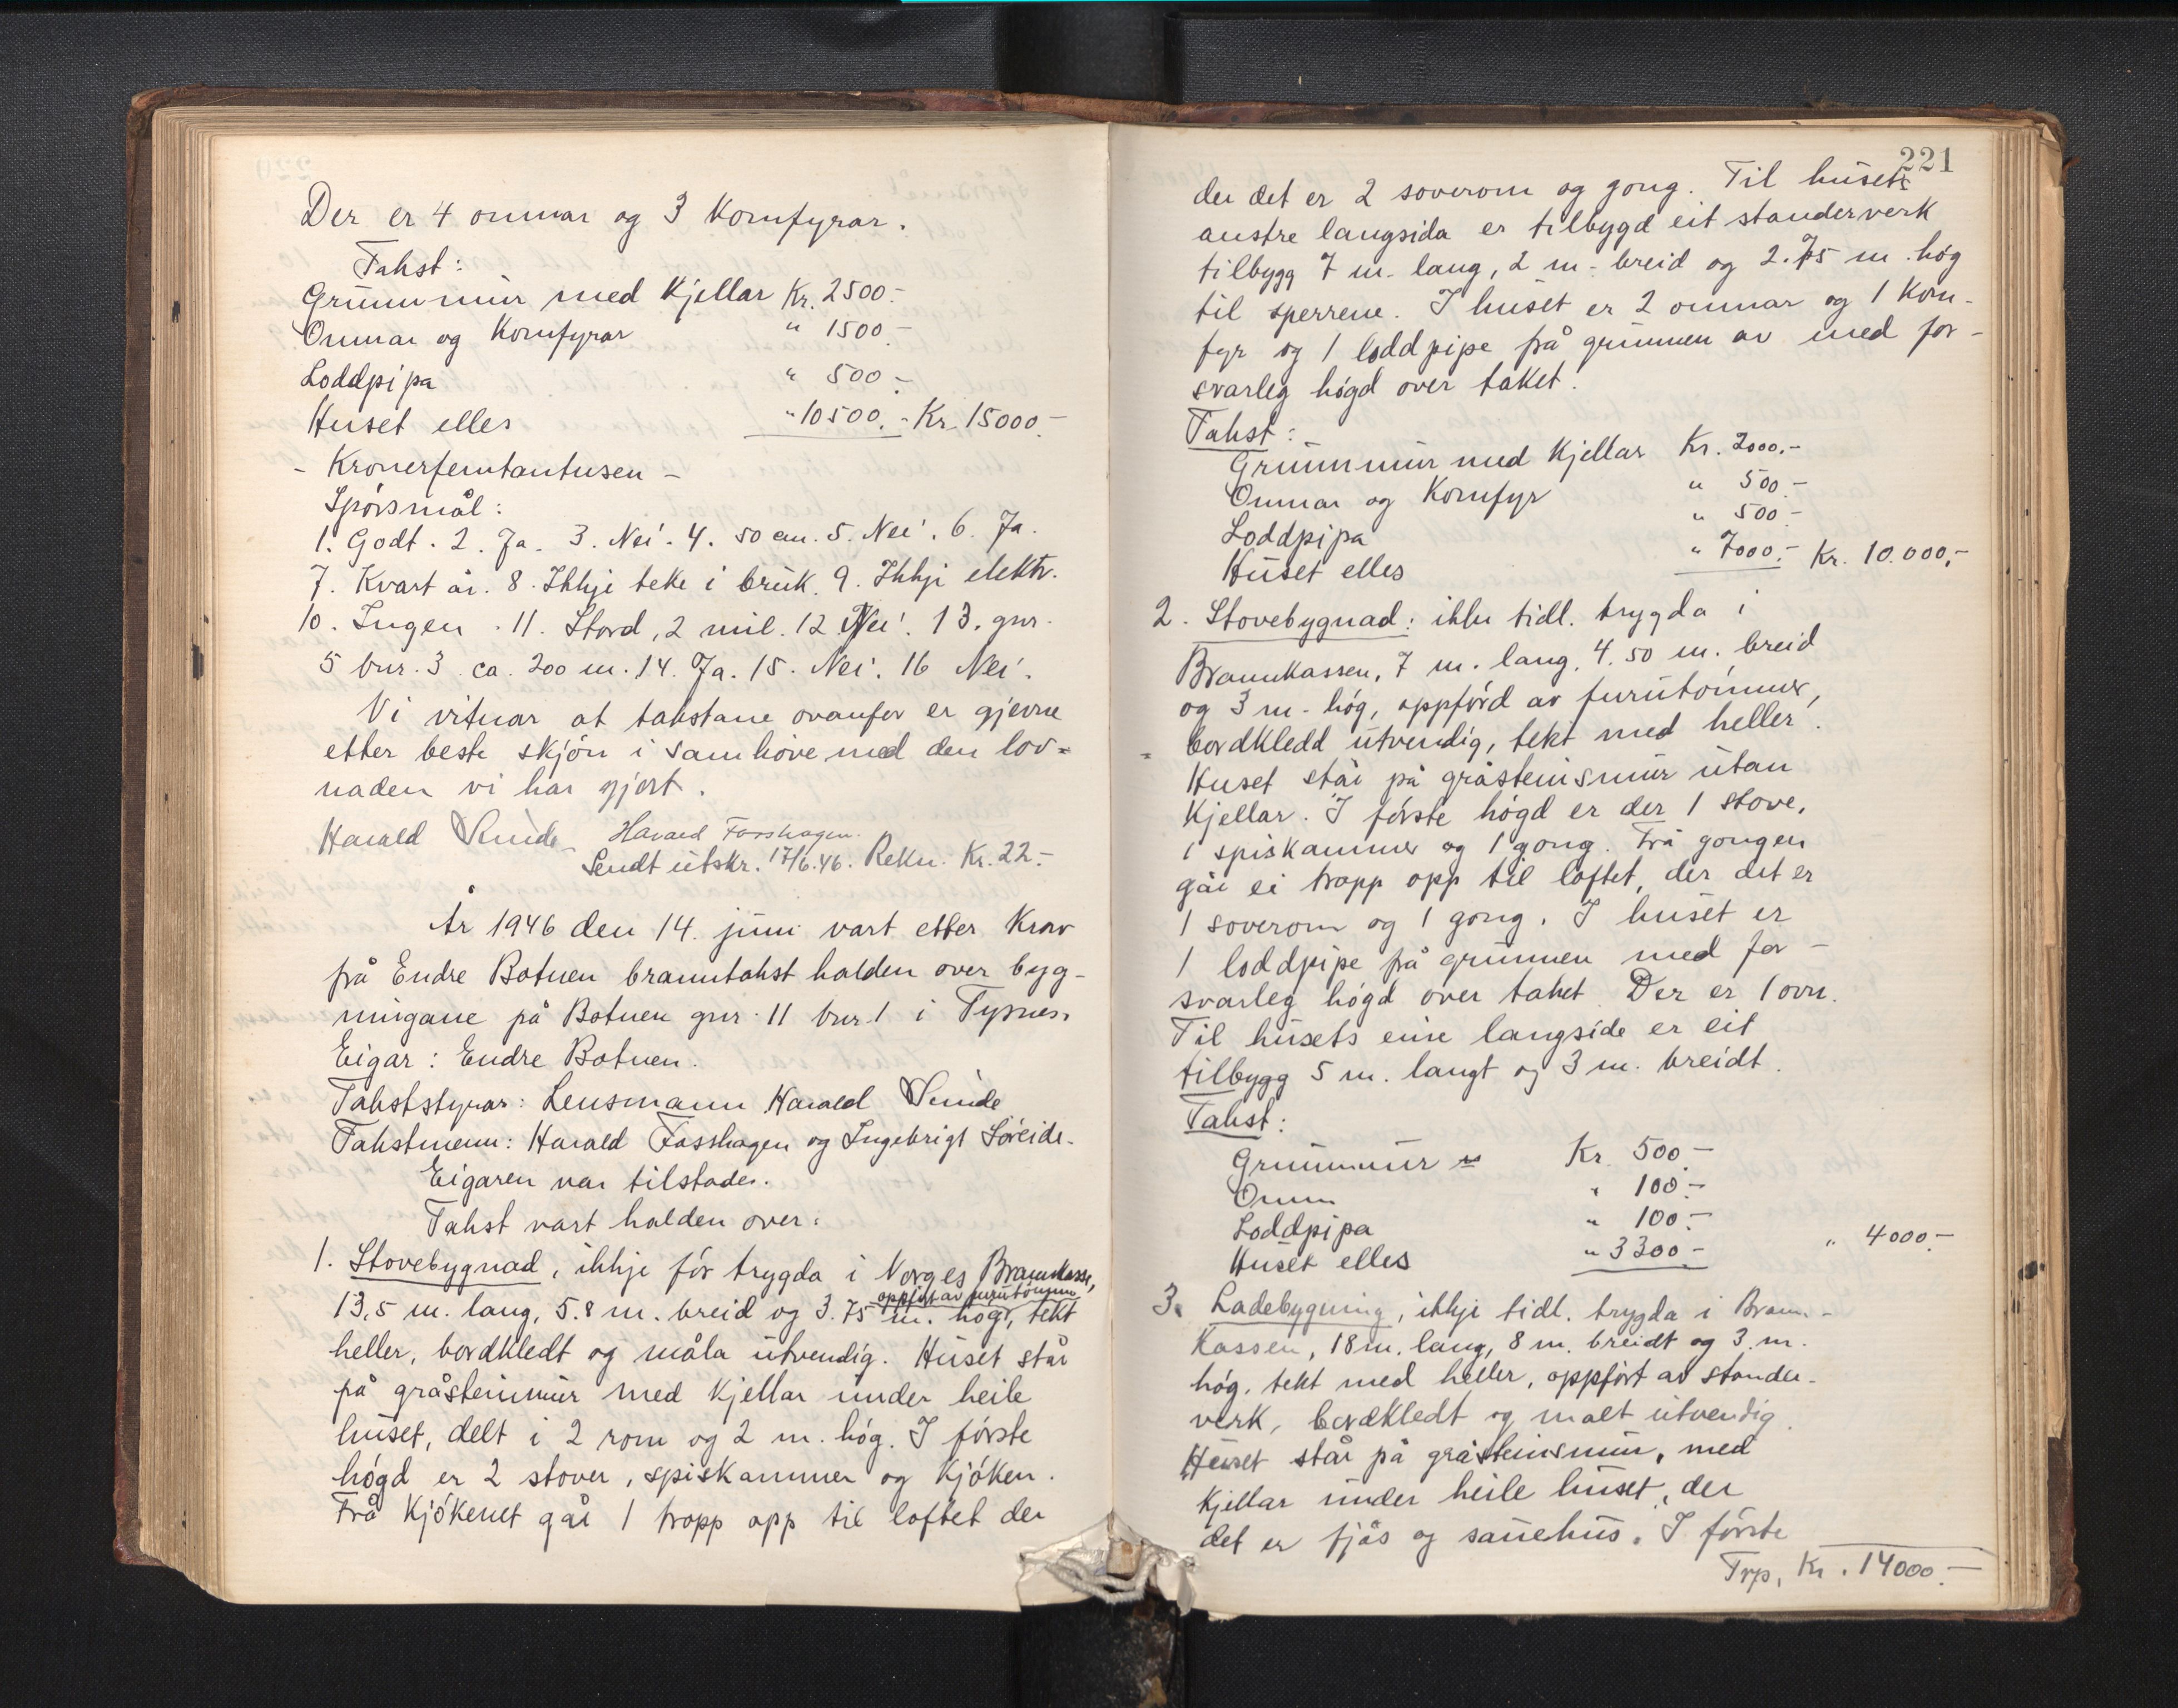 Der er 4 omnar og 3 Komfyrar.
Takst:
Grunnmur med Kjellar Kr. 2500.-
Omnar og Komfyrar " 1500.-
Loddpipa " 500.-
Huset elles " 10500.- Kr. 15000.-
- Kronerfemtantusen -
Spörsmål:
1. Godt. 2. Ja. 3. Nei. 4. 50 cm. 5. Nei. 6. Ja.
7. Kvart år. 8. Ikkje teke i bruk. 9. Ikkje elektr.
10. Ingen. 11. Stord, 2 mil. 12 Nei. 13. gnr.
5 bnr. 3 ca. 200 m. 14. Ja. 15. Nei. 16 Nei.
Vi vitnar at takstane ovanfor er gjevne
etter beste skjön i samhöve med den lov=
naden vi har gjort.
Harald Sunde Harald Fosshagen.
Sendt utskr. 17/6.46. Rekn. Kr. 22.-
År 1946 den 14. juni vart etter Krav
frå Endre Botnen branntakst halden over byg-
ningane på Botnen gnr. 11 bnr. 1 i Tysnes.
Eigar: Endre Botnen.
Takststyrar: Lensmann Harald Sunde
Takstmenn: Harald Fosshagen og Ingebrigt Söreide.
Eigaren var tilstades.
Takst vart halden over:
1. Stovebygnad, ikkje för trygda i Norges Brannkasse,
oppfört av furutömmer
13,5 m. lang, 5.8 m. breid og 3.75 m. hög, tekt
heller, bordkledt og måla utvendig. Huset står
på gråsteinmur med Kjellar under heile
huset, delt i 2 rom og 2 m. hög. I förste
högd er 2 stover, spiskammer og Kjöken.
Frå Kjökenet går 1 tropp opp til loftet der
221
der det er 2 soverom og gong. Til husets
austre langsida er tilbygd eit standerverk
tilbygg 7 m. lang, 2 m. breid og 2.75 m. hög
til sperrene. I huset er 2 omnar og 1 Kom-
fyr og 1 loddpipe frå grunnen av med for-
svarleg högd over taket.
Takst:
Grunnmur med Kjellar Kr. 2000.-
Omnar og Komfyr " 500.-
Loddpipa " 500.-
Huset elles " 7000.- Kr. 10.000,-
2. Stovebygnad: ikke tidl. trygda i
Brannkassen, 7 m. lang, 4.50 m. breid
og 3 m. hög, oppförd av furutömmer,
bordkledd utvendig, tekt med heller.
Huset står på gråsteinsmur utan
Kjellar. I förste högd er der 1 stove,
1 spiskammer og 1 gong. Frå gongen
går ei tropp opp til loftet, der det er
1 soverom og 1 gong. I huset er
1 loddpipe frå grunnen med for-
svarleg högd over taket. Der er 1 ovn.
Til husets eine langside er eit
tilbygg 5 m. langt og 3 m. breidt.
Takst:
Grunnmur Kr. 500.-
Omn " 100.-
Loddpipa " 100.-
Huset elles " 3300.- " 4000.-
3. Ladebygning, ikkje tidl. trygda i Brann-
Kassen, 18 m. lang, 8 m. breidt og 3. m.
hög, tekt med heller, oppfört av stander-
verk, bordkledt og malt utvendig.
Huset står på gråsteinsmur, med
Kjellar under heile huset, der
det er fjös og sauehus. I förste
Trp. Kr. 14000.-